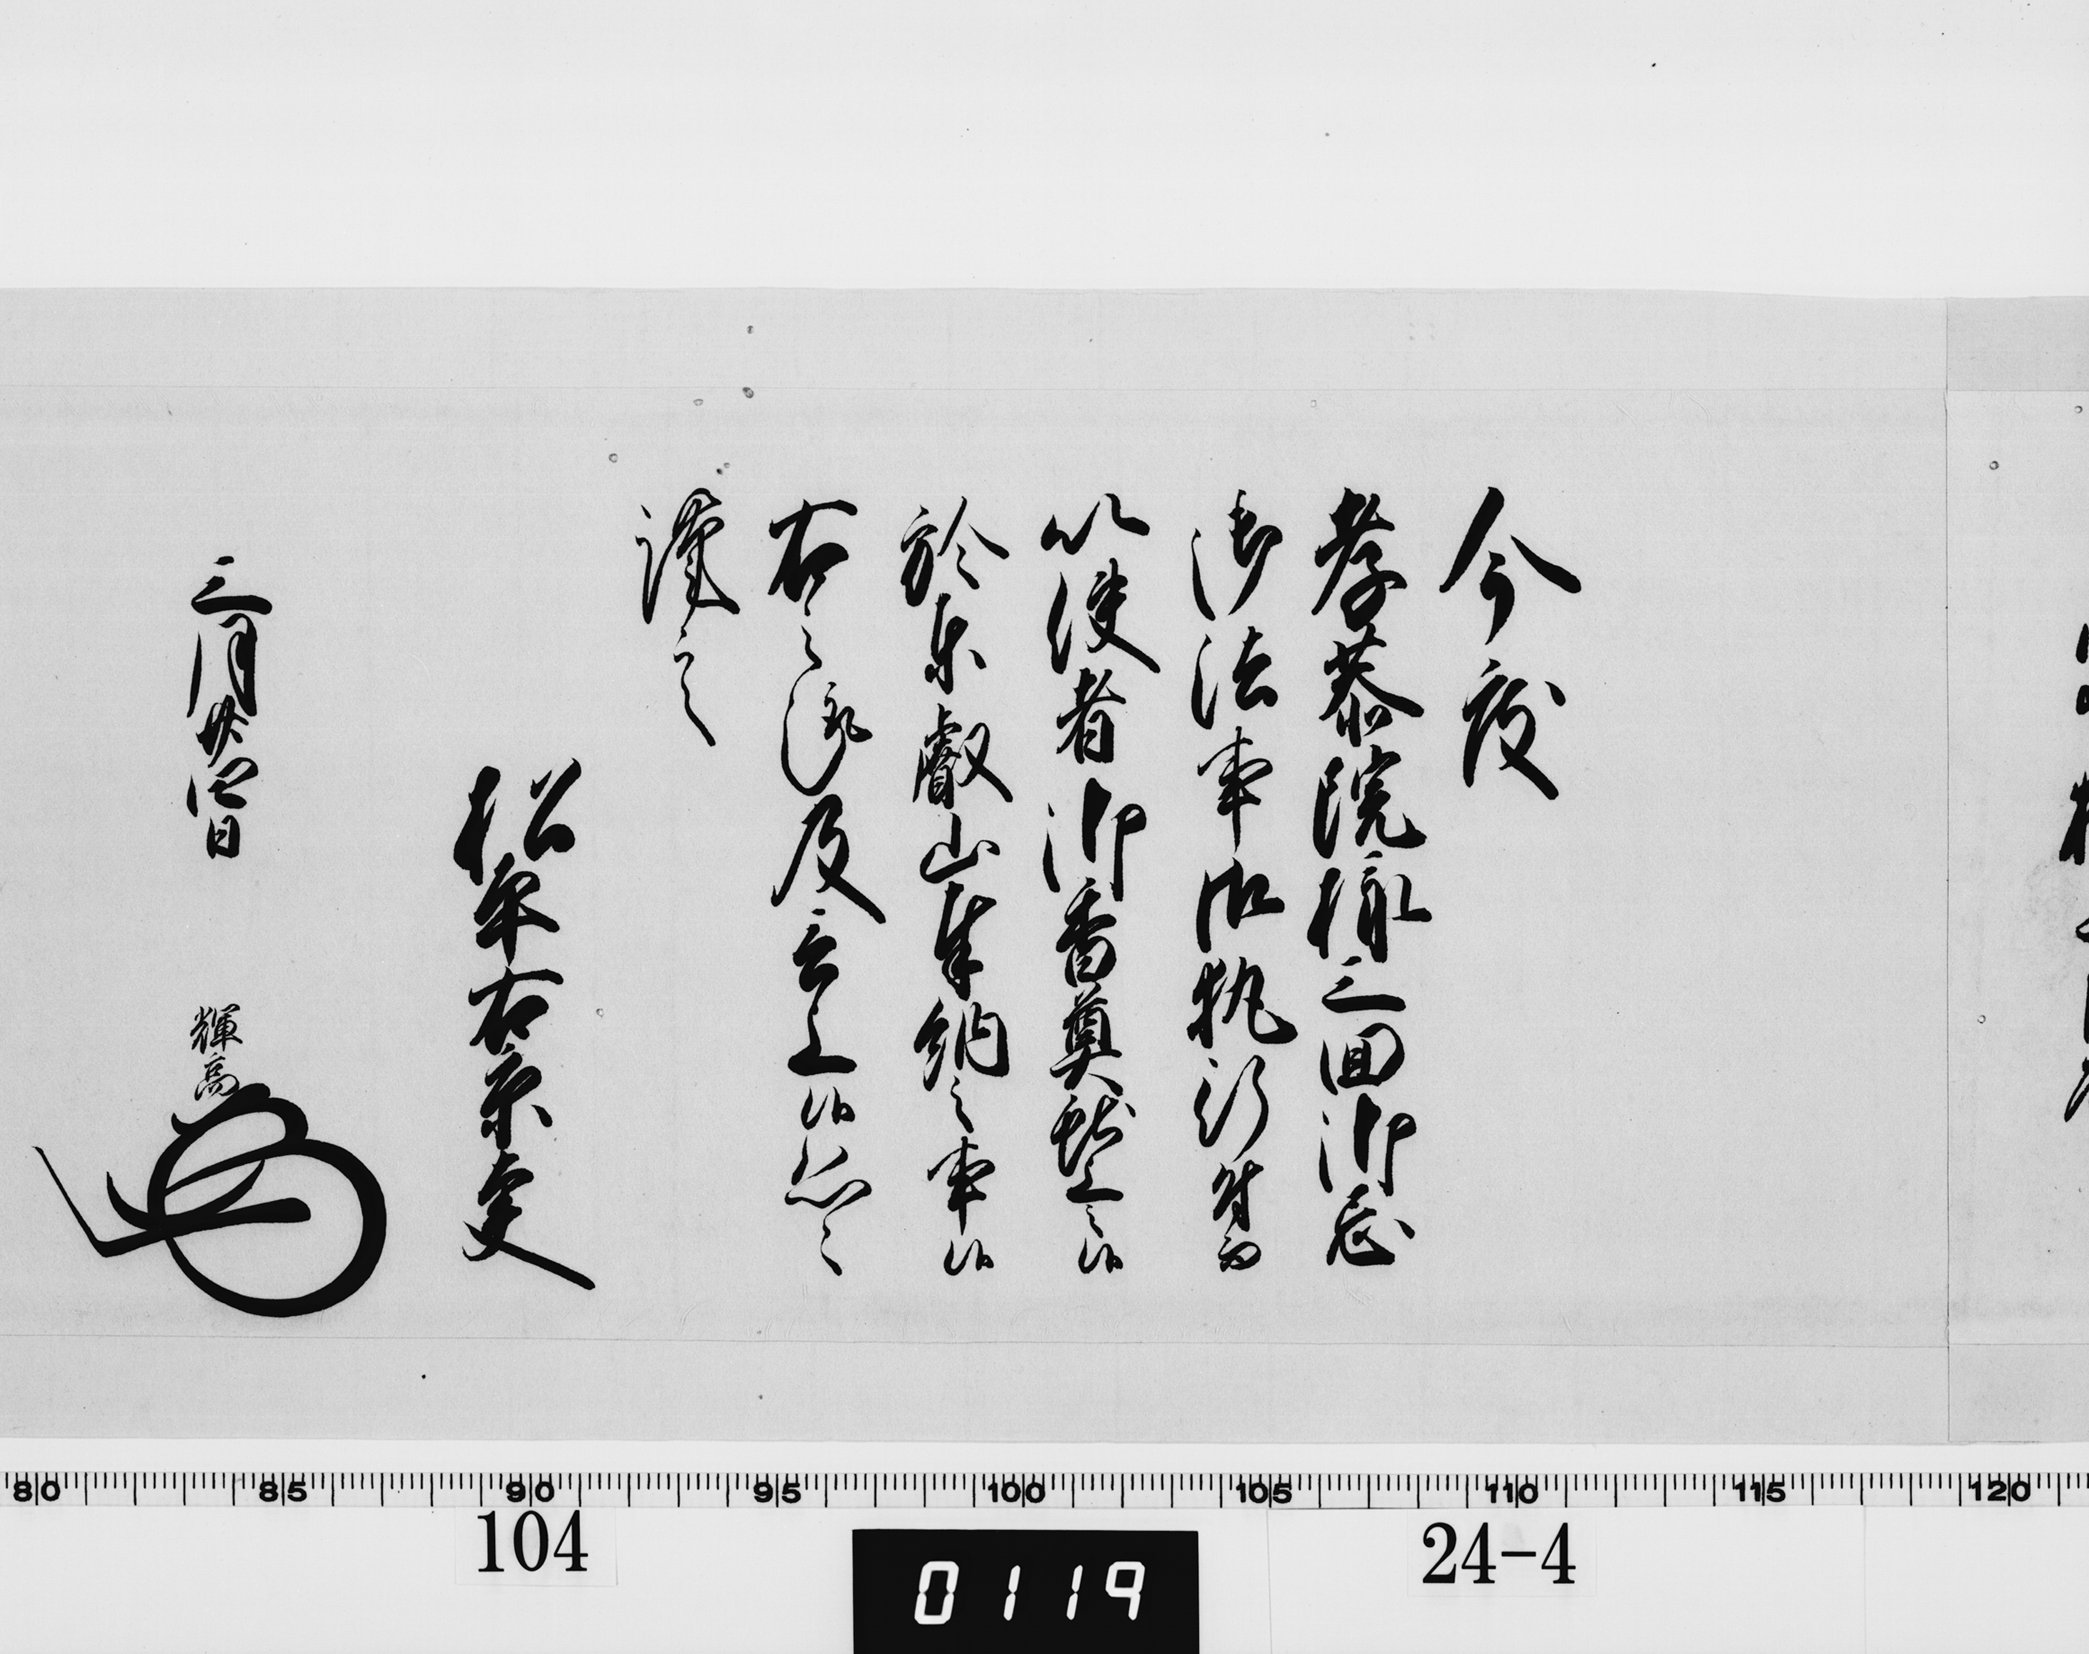 今度
孝恭院様三回御忌
御法事御執行付而
以使者御香奠献上之候
於東叡山奉納之事候
右之趣及言上候恐々
謹言
松平右京大夫
三月廿四日
輝高
80 85 90 95 100 105 110 115 120
104
0119
24-4